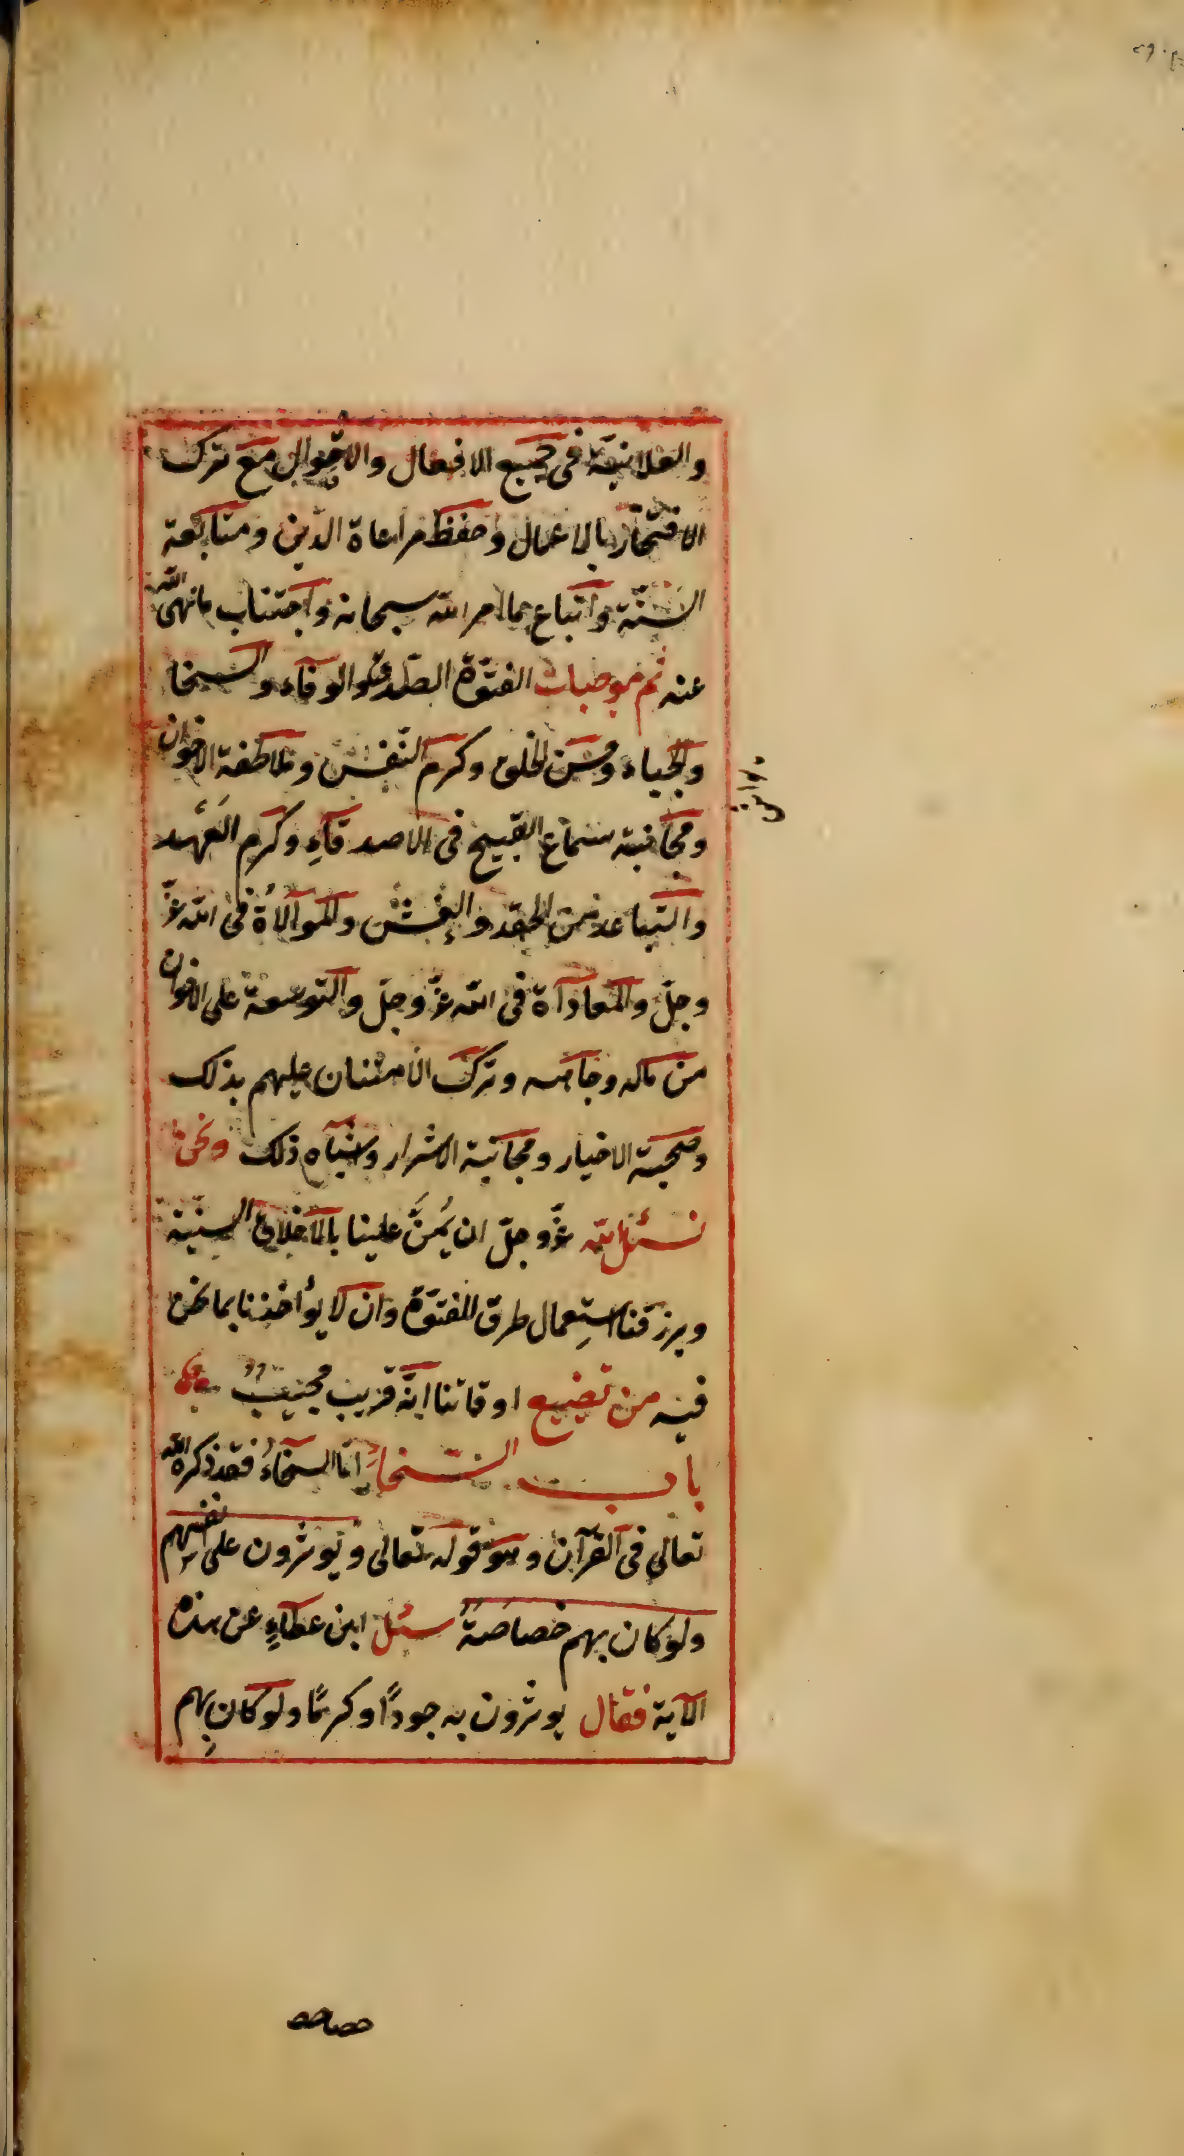 والعلانية فى جميع الافعال والاحوال مع ترك
الافتخار بالاعمال وحفظ مراعاة الدّين ومتابعة
السّنّة واتباع مما امر الله سبحانه واجتناب ما نهى الله
عنه ثم موجبات الفتوّة الصّدق والوفاء والسخا
والحياء وحسن الخلق وكرم النّفس وملاطفة الاخوان
ومجانبة سماع القبيح فى الاصدقآءِ وكرم العَهْد
والتباعد من الحقد والغش والموالاة فى الله عزّ
وجلّ والمعاداة فى الله عزّ وجلّ والتوسعة على الاخوان
من ماله وجاهه وترك الامتنان عليهم بذلك
وصحبة الاخيار ومجانبة الاشرار واشباه ذلك ونحن
نسئل الله عزّ وجلّ ان يُمنَّ علينا بالاخلاق السنيّة
ويرزقنا استعمال طرق الفتوّة وان لا يؤاخذنا بما نحن
فيه من تضييع اوقاتنا انّه قريب مجيبٌ
باب السّخاءِ امّا السخآءُ فقد ذكره الله
تعالى فى القرآن وهو قوله تعالى ويوثرون على انفسهم
ولو كان بهم خصاصةٌ سئل ابن عطاءِ عن هذه
الآية فقال يوثرون به جودًا وكرمًا ولو كان بِهم
خصاصه